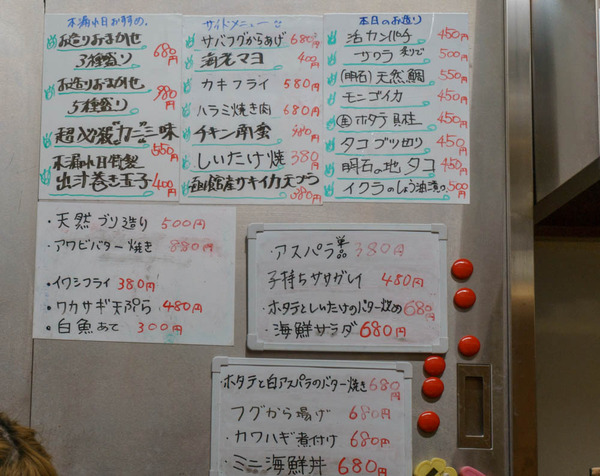 木漏れ日おすすめ。
お造りおまかせ
3種盛り 680円
お造りおまかせ
5種盛り 980円
超必殺"カニ"三味
550円
木漏れ日特製
出汁巻き玉子 400円
サイドメニュー
サバフグからあげ 680円
海老マヨ 400円
カキフライ 580円
ハラミ焼き肉 680円
チキン南蛮 円
しいたけ焼 380円
函館産サキイカ天ぷら
380円
本日のお造り
活カンパチ 450円
サワラ 炙りで 500円
(明石)天然鯛 550円
モンゴイカ 450円
ホタテ貝柱 450円
タコブツ切り 450円
明石の地タコ 450円
イクラのしょう油漬け 500円
・天然ブリ造り 500円
・アワビバター焼き 880円
・イワシフライ 380円
・ワカサギ天ぷら 480円
・白魚あて 300円
・アスパラ単品 380円
・子持ちササガレイ 480円
・ホタテとしいたけのバター炒め 680円
・海鮮サラダ 680円
・ホタテと白アスパラのバター焼き 680円
・フグから揚げ 680円
・カワハギ煮付け 680円
・ミニ海鮮丼 680円